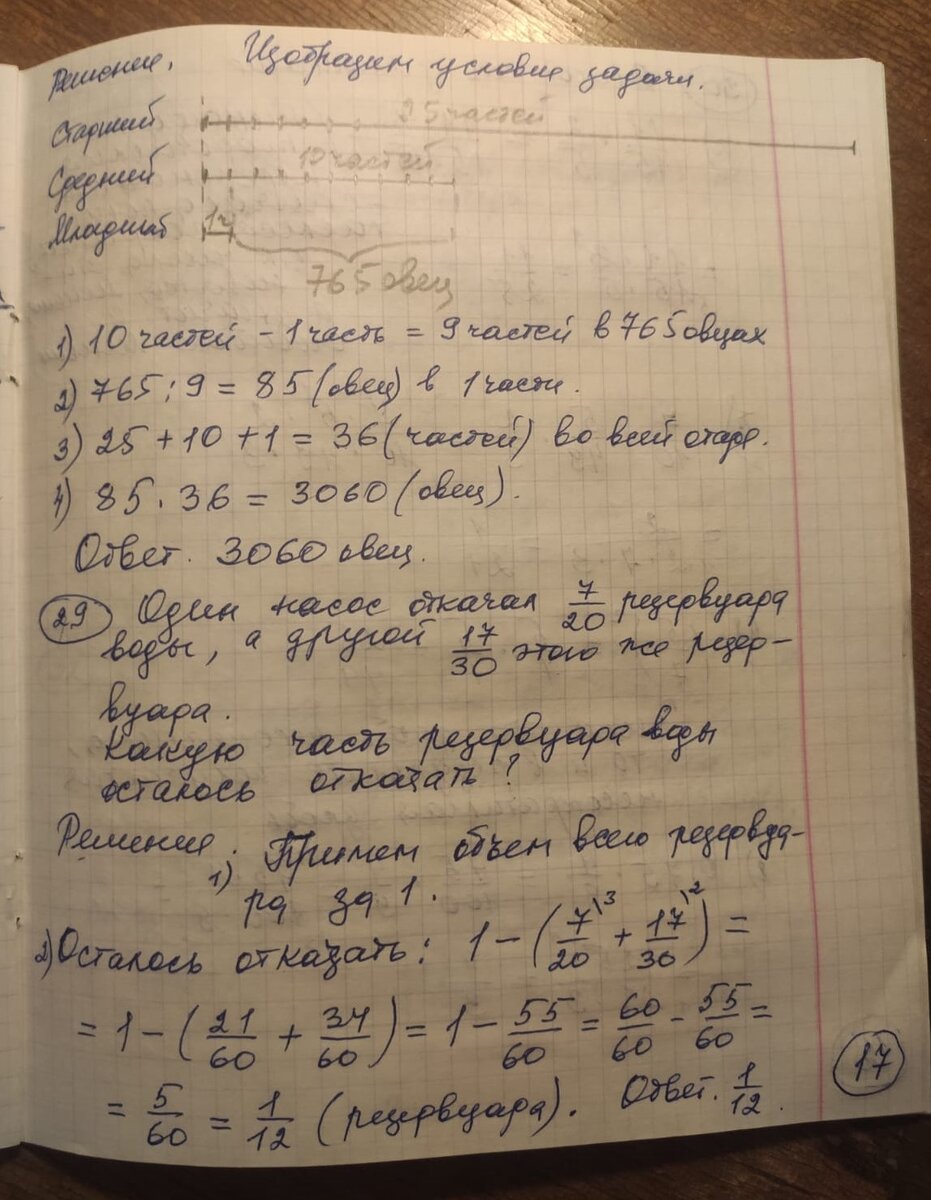 Решение. Изобразим условие задачи.
Старший 25 частей
Средний 10 частей
Младший 1ч
765 овец
1) 10 частей - 1 часть = 9 частей в 765 овцах
2) 765 : 9 = 85 (овец) в 1 части.
3) 25 + 10 + 1 = 36 (частей) во всей отаре.
4) 85 · 36 = 3060 (овец).
Ответ. 3060 овец.
29 Один насос откачал 7/20 резервуара
воды, а другой 17/30 этого же резер-
вуара.
Какую часть резервуара воды
осталось откачать?
Решение. 1) Примем объем всего резервуа-
ра за 1.
2) Осталось откачать: 1 - (7/20\3 + 17/30\2) =
= 1 - (21/60 + 34/60) = 1 - 55/60 = 60/60 - 55/60 =
= 5/60 = 1/12 (резервуара). Ответ. 1/12.
17